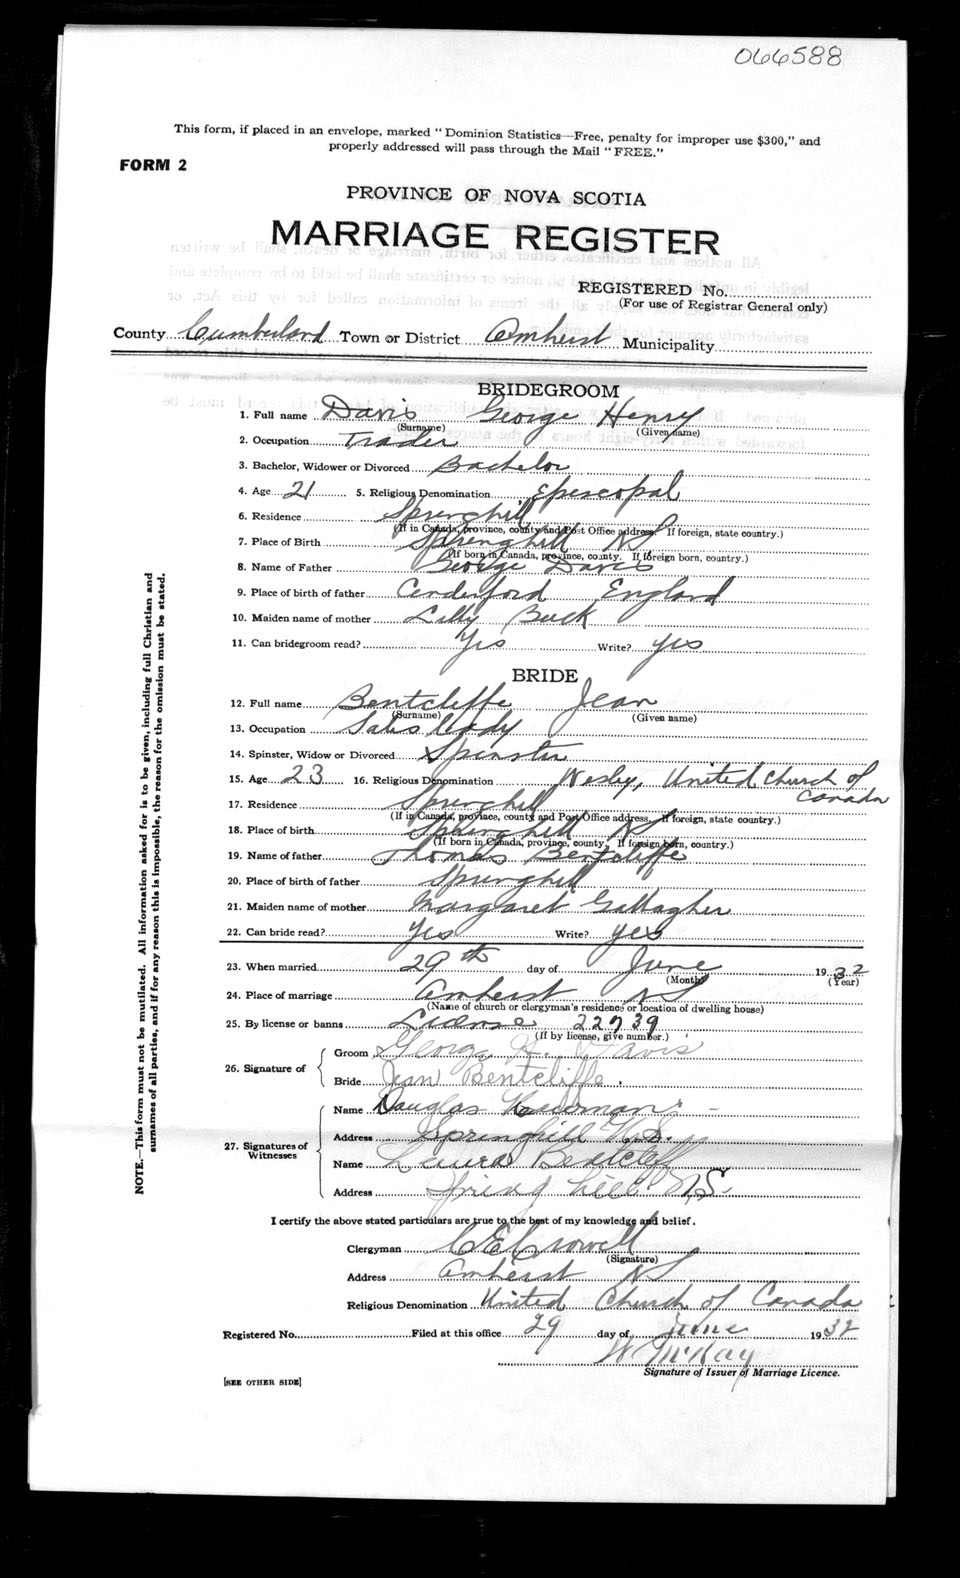 066588
This form, if placed in an envelope, marked "Dominion Statistics—Free, penalty for improper use $300," and
properly addressed will pass through the Mail "FREE."
FORM 2
PROVINCE OF NOVA SCOTIA
MARRIAGE REGISTER
REGISTERED No.
(For use of Registrar General only)
County Cumberland Town or District Amherst Municipality
BRIDEGROOM
1. Full name Davis George Henry
(Surname) (Given name)
2. Occupation Trader
3. Bachelor, Widower or Divorced Bachelor
4. Age 21 5. Religious Denomination Episcopal
6. Residence Springhill
(If in Canada, province, county and Post Office address. If foreign, state country.)
7. Place of Birth Springhill NS
(If born in Canada, province, county. If foreign born, country.)
8. Name of Father George Davis
9. Place of birth of father Cinderford England
10. Maiden name of mother Lilly Buck
11. Can bridegroom read? Yes Write? yes
BRIDE
12. Full name Bentcliffe Jean
(Surname) (Given name)
13. Occupation Sales Lady
14. Spinster, Widow or Divorced Spinster
15. Age 23 16. Religious Denomination Wesley, United Church of
Canada
17. Residence Springhill
(If in Canada, province, county and Post Office address. If foreign, state country.)
18. Place of birth Springhill NS
(If born in Canada, province, county. If foreign born, country.)
19. Name of father Thomas Bentcliffe
20. Place of birth of father Springhill
21. Maiden name of mother Margaret Gallagher
22. Can bride read? Yes Write? yes
23. When married 29th day of June 1932
(Month) (Year)
24. Place of marriage Amherst NS
(Name of church or clergyman's residence or location of dwelling house)
25. By license or banns License 22739
(If by license, give number.)
26. Signature of
Groom George H. Davis
Bride Jean Bentcliffe.
27. Signatures of
Witnesses
Name Douglas
Address Springhill N.S.
Name Laura Bentcliff
Address Spring hill N.S.
I certify the above stated particulars are true to the best of my knowledge and belief.
Clergyman C E Crowell
(Signature)
Address Amherst NS
Religious Denomination United Church of Canada
Registered No. Filed at this office 29 day of June 1932
W McKay
Signature of Issuer of Marriage Licence.
[SEE OTHER SIDE]
NOTE.—This form must not be mutilated. All information asked for is to be given, including full Christian and
surnames of all parties, and if for any reason this is impossible, the reason for the omission must be stated.